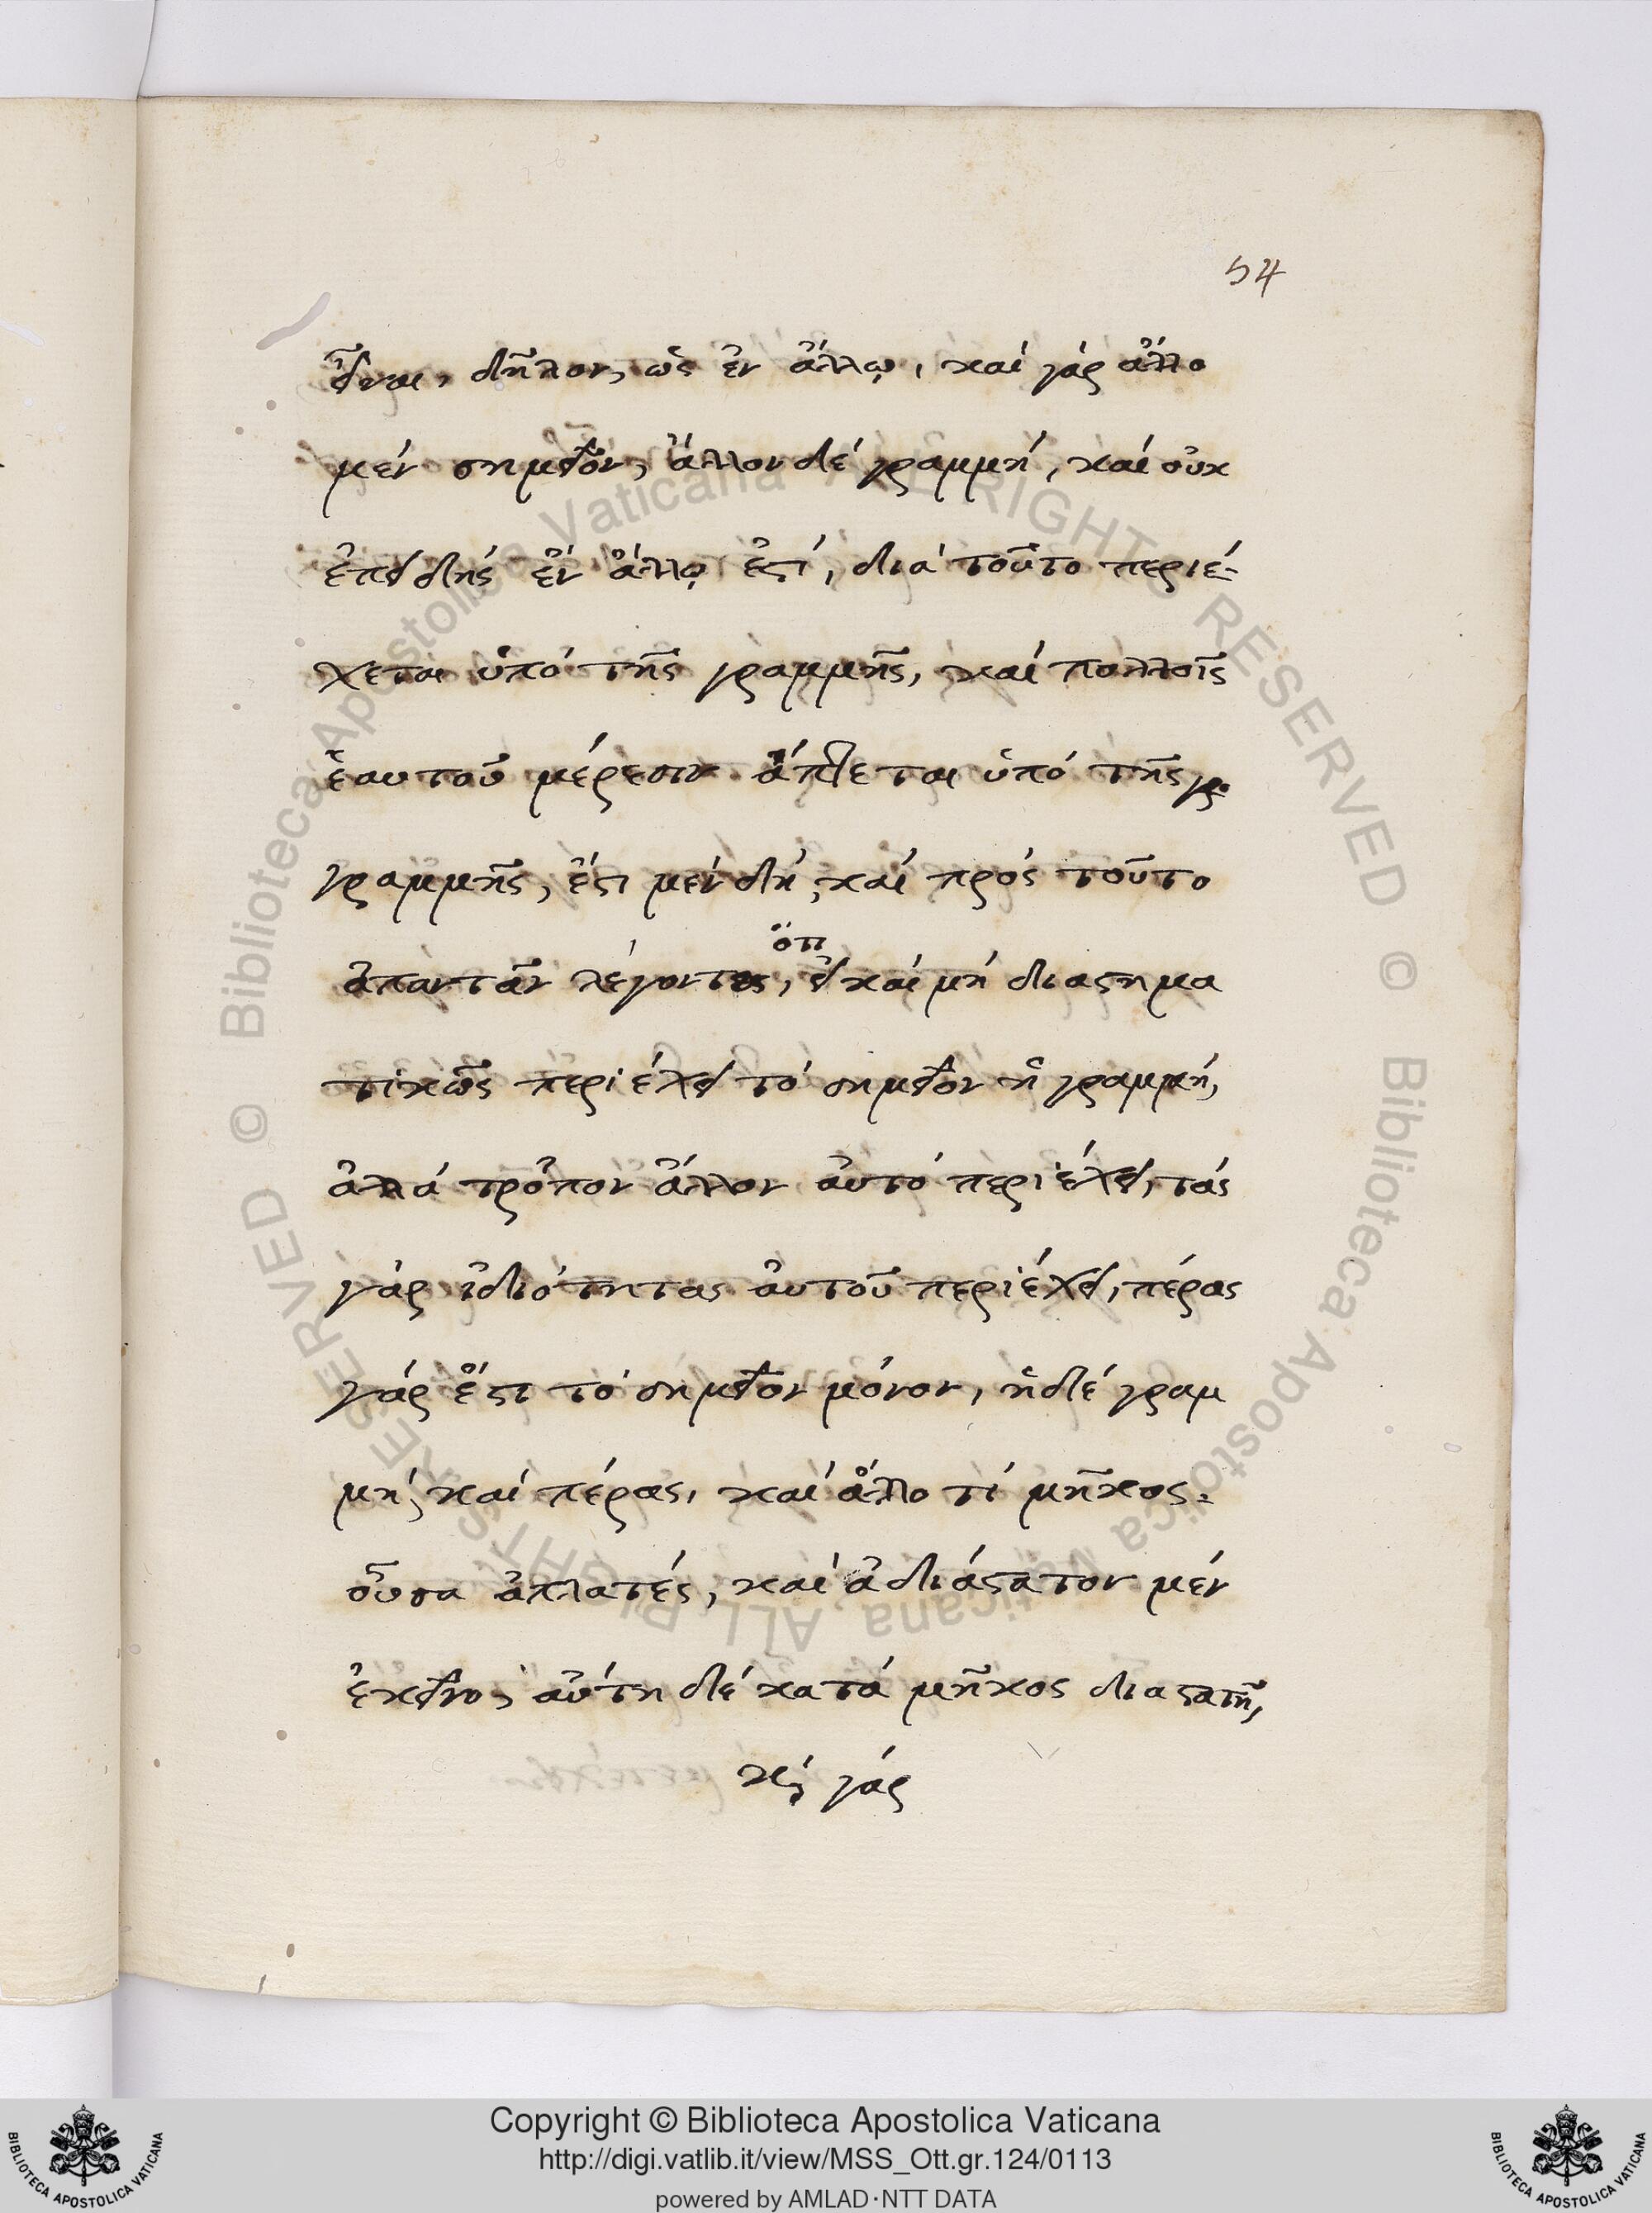 54
εἶναι, δῆλον, ὡς ἐν ἄλλῳ, καί γάρ ἄλλο
μέν σημεῖον, ἄλλον δέ γραμμή, καί οὐκ
ἐπειδής ἐν ἄλλῳ ἐστί, διά τοῦτο περιέ-
χεται ὑπό τῆς γραμμῆς, καί πολλοῖς
ἑαυτοῦ μέρεσιν ἅπτεται ὑπό τῆς γρ
γραμμῆς, ἔστι μέν δή, καί πρός τοῦτο
ὅτι
ἀπαντᾶν λέγοντας, εἰ καί μή διαστημα
τικῶς περιέχει τό σημεῖον ἡ γραμμή,
ἀλλά τρόπον ἄλλον αὐτό περιέχει, τάς
γάρ ἰδιότητας αὐτοῦ περιέχει, πέρας
γάρ ἔστι τό σημεῖον μόνον, ἡ δέ γραμ
μή, καί πέρας, καί ἄλλο τί μῆκος.
οὖσα ἀπλατές, καί ἀδιάστατον μέν
ἐκεῖνο, αὕτη δέ κατά μῆκος διαστατῆ,
καί γάρ
Copyright © Biblioteca Apostolica Vaticana
http://digi.vatlib.it/view/MSS_Ott.gr.124/0113
powered by AMLAD·NTT DATA